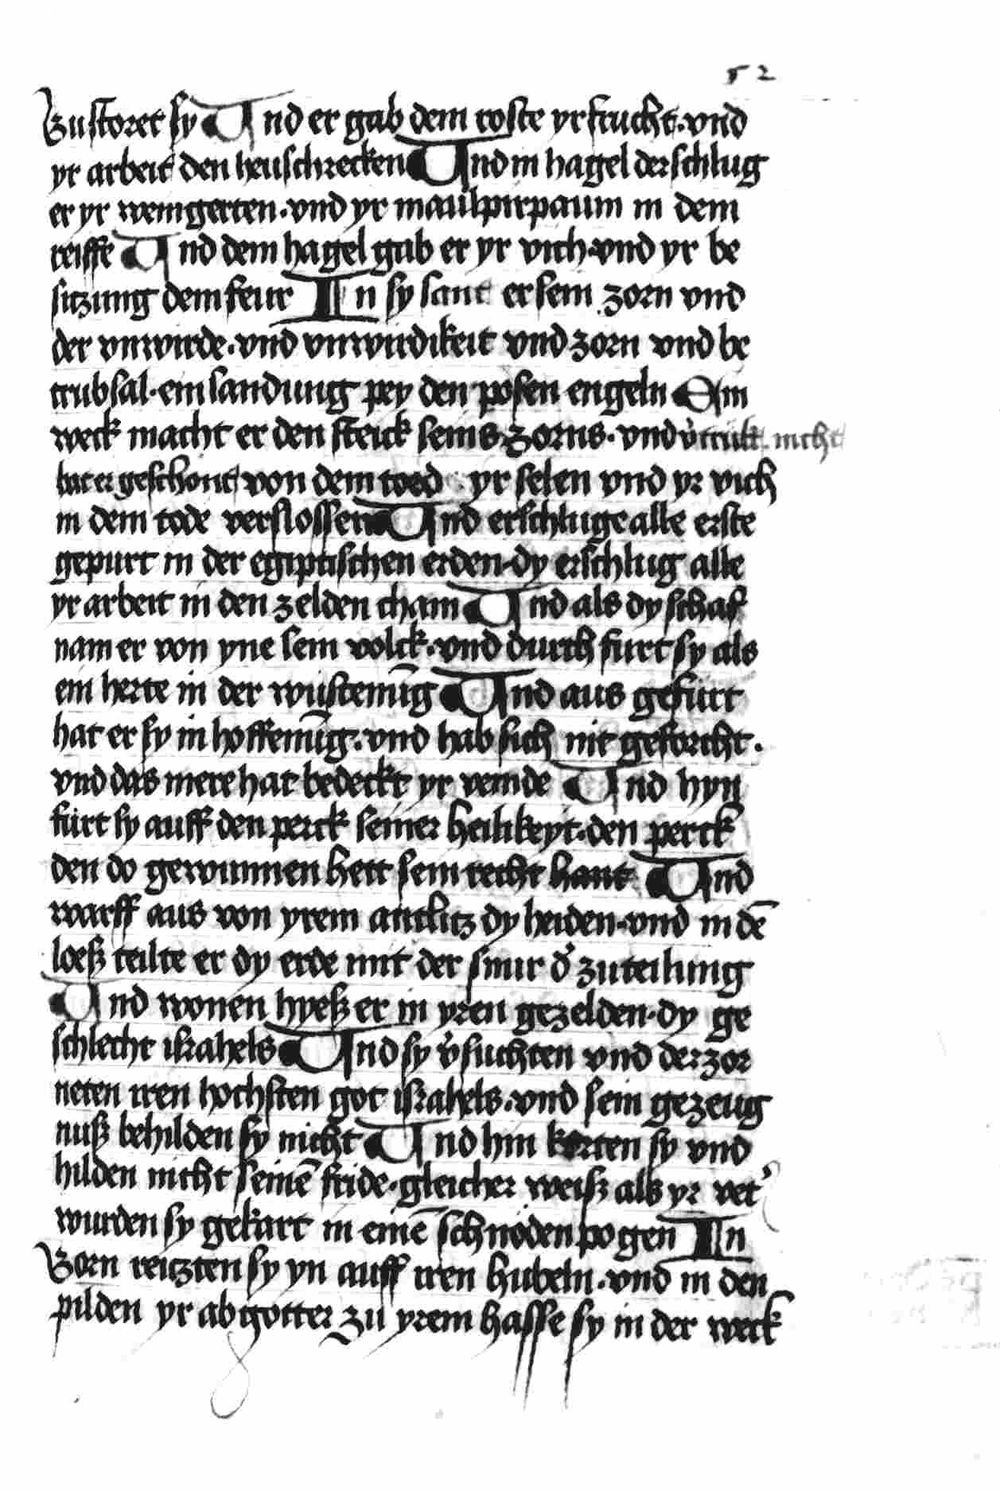 52
Zustoret sy Und er gab dem roste yr frucht · vnd
yr arbeit den heuschrecken Und in hagel derschlug
er yr weingerten · vnd yr maulpirpaum in dem
reiffe Und dem hagel gab er yr vich · vnd yr be
sitzung dem feur In sy sant er sein zorn vnd
der vnwirde · vnd vnwirdikeit vnd zorn vnd be
trubsal · ein sandung pey den posen engeln Ein
weck macht er den steick seins zorns · vnd nicht
hat er geschont von dem tod yr selen vnd yr vich
in dem tode verslossen Und erschluge alle erste
gepurt in der egiptischen erden · dy erschlug alle
yr arbeit in den zelden cham Und als dy schaf
nam er von yne sein volck · vnd durch furt sy als
ein herte in der wustenūg Und aus gefurt
hat er sy in hoffenūg · vnd hab sich nit geforcht ·
vnd das mere hat bedeckt yr veinde Und hyn
furt sy auff den perck seiner heilikeyt · den perck
den do gewunnen hett sein recht hant Und
warff aus von yrem antlitz dy heiden · vnd in dē
loeß teilte er dy erde mit der snur d' zuteilung
Und wonen hyeß er in yren gezelden · dy ge
schlecht israhels Und sy v'suchten vnd derzor
neten iren hochsten got israhels · vnd sein gezeug
nuß behilden sy nicht Und hin kerten sy vnd
hilden nicht seinē fride · gleicher weiß als yr vet'
wurden sy gekart in einē schnoden pogen In
Zorn reitzten sy yn auff iren hubeln · vnd in den
pilden yr abgotter zu yrem hasse sy in der weck